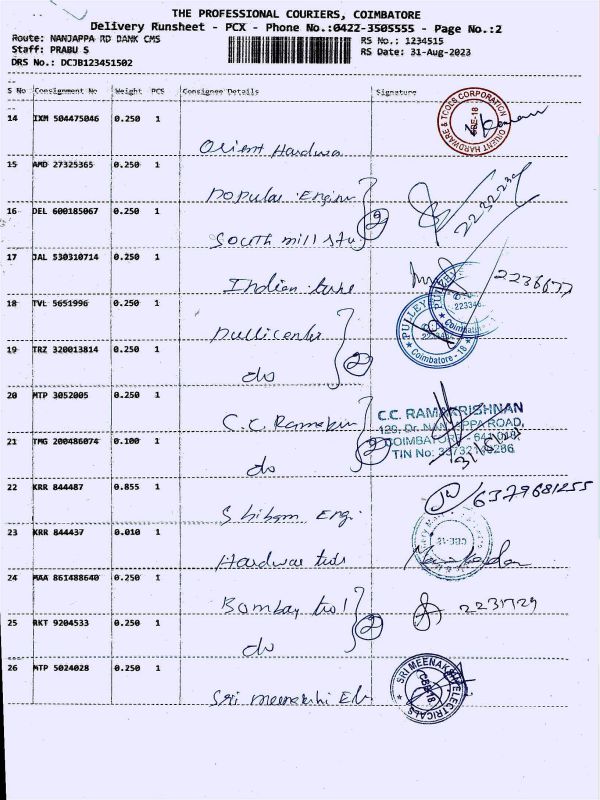 THE PROFESSIONAL COURIERS, COIMBATORE
Delivery Runsheet - PCX - Phone No.:0422-3505555 - Page No.:2
Route: NANJAPPA RD DANK CMS
Staff: PRABU S
DRS No.: DCJB123451502
RS No.: 1234515
RS Date: 31-Aug-2023
S No Consignment No Weight PCS Consignee Details Signature
14 IXM 504475046 0.250 1
Orient Hardwa
HARDWARE & TOOLS CORPORATION ORIENT
CBE-18
15 AMD 27325365 0.250 1
Popular Engine
16 DEL 600185067 0.250 1
South mill stu
2
17 JAL 530310714 0.250 1
Indian tube
2236677
18 TVL 5651996 0.250 1
Pullicentre
PULLEY
Coimbatore - 18
19 TRZ 320013814 0.250 1
do
2
20 MTP 3052005 0.250 1
C.C. Ramakri
C.C. RAMAKRISHNAN
129, Dr. NANJAPPA ROAD,
COIMBATORE - 641 018
TIN No:
21 TMG 200486074 0.100 1
do
2
22 KRR 844487 0.855 1
Shibam Eng.
6379681255
23 KRR 844437 0.010 1
Hardwar tods
CBE-18
24 MAA 861488640 0.250 1
Bombay tool
2231729
25 RKT 9204533 0.250 1
do
2
26 MTP 5024028 0.250 1
Sri meenakshi Ele
SRI MEENAKSHI ELECTRICALS
CBE-18